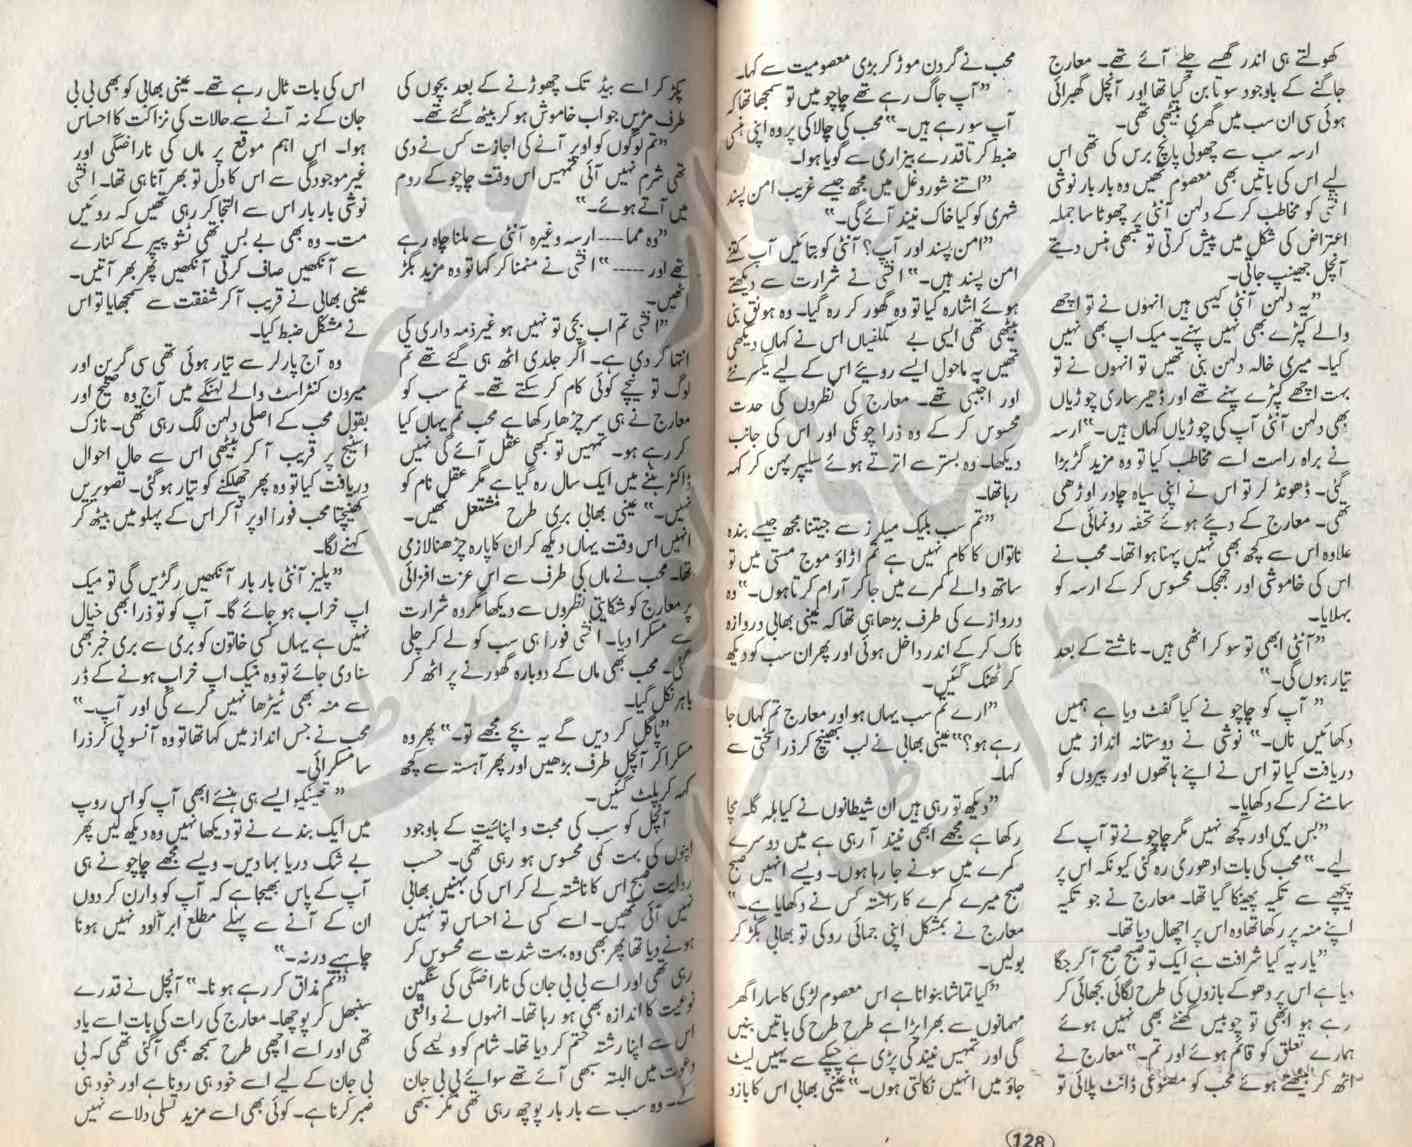 کھولتے ہی اندر گھسے چلے آئے تھے۔ معارج
جاگنے کے باوجود سوتا بن گیا تھا اور آنچل گھبرائی
ہوئی سی ان سب میں گھری بیٹھی تھی۔
ارسہ سب سے چھوٹی پانچ برس کی تھی اس
لیے اس کی باتیں بھی معصوم تھیں وہ بار بار نوشی
افشی کو مخاطب کرکے دلہن آنٹی پر چھوٹا سا جملہ
اعتراض کی شکل میں پیش کرتی تو سبھی ہنس دیتے
آنچل جھینپ جاتی۔
”یہ دلہن آنٹی کیسی ہیں انہوں نے تو اچھے
والے کپڑے بھی نہیں پہنے۔ میک اپ بھی نہیں
کیا۔ میری خالہ دلہن بنی تھیں تو انہوں نے تو
بہت اچھے کپڑے پہنے تھے اور ڈھیر ساری چوڑیاں
بھی دلہن آنٹی آپ کی چوڑیاں کہاں ہیں۔“ ارسہ
نے براہ راست اسے مخاطب کیا تو وہ مزید گڑبڑا
گئی۔ ڈھونڈ کر تو اس نے اپنی سیاہ چادر اوڑھی
تھی۔ معارج کے دیئے ہوئے تحفہ رونمائی کے
علاوہ اس سے کچھ بھی نہیں پہنا ہوا تھا۔ محب نے
اس کی خاموشی اور جھجک محسوس کرکے ارسہ کو
بہلایا۔
”آنٹی ابھی تو سو کر اٹھی ہیں۔ ناشتے کے بعد
تیار ہوں گی۔“
”آپ کو چاچو نے کیا گفٹ دیا ہے ہمیں
دکھائیں ناں۔“ نوشی نے دوستانہ انداز میں
دریافت کیا تو اس نے اپنے ہاتھوں اور پیروں کو
سامنے کرکے دکھایا۔
”بس یہی اور کچھ نہیں مگر چاچو نے تو آپ کے
لیے۔“ محب کی بات ادھوری رہ گئی کیونکہ اس پر
پیچھے سے تکیہ پھینکا گیا تھا۔ معارج نے جو تکیہ
اپنے منہ پر رکھا تھا وہ اس پر اچھال دیا تھا۔
”یار یہ کیا شرافت ہے ایک تو صبح صبح آکر جگا
دیا ہے اس پر دھوکے بازوں کی طرح لگائی بجھائی کر
رہے ہو ابھی تو چوبیس گھنٹے بھی نہیں ہوئے
ہمارے تعلق کو قائم ہوئے اور تم۔“ معارج نے
اٹھ کر بیٹھتے ہوئے محب کو مصنوعی ڈانٹ پلائی تو
محب نے گردن موڑ کر بڑی معصومیت سے کہا۔
”آپ جاگ رہے تھے چاچو میں تو سمجھا تھا کہ
آپ سو رہے ہیں۔“ محب کی چالاکی پر وہ اپنی ہنسی
ضبط کرتا قدرے بیزاری سے گویا ہوا۔
”اتنے شور و غل میں مجھ جیسے غریب امن پسند
شہری کو کیا خاک نیند آئے گی۔“
”امن پسند اور آپ؟ آنٹی کو بتائیں آپ کتنے
امن پسند ہیں۔“ افشی نے شرارت سے دیکھتے
ہوئے اشارہ کیا تو وہ گھور کر رہ گیا۔ وہ ہونق بنی
بیٹھی تھی ایسی بے تکلفیاں اس نے کہاں دیکھی
تھیں یہ ماحول ایسے رویئے اس کے لیے یکسر نئے
اور اجنبی تھے۔ معارج کی نظروں کی حدت
محسوس کرکے وہ ذرا چونکی اور اس کی جانب
دیکھا۔ وہ بستر سے اترتے ہوئے سلیپر پہن کر کہہ
رہا تھا۔
”تم سب بلیک میلرز سے جیتنا مجھ جیسے بندہ
ناتواں کا کام نہیں ہے تم اڑاؤ موج مستی میں تو
ساتھ والے کمرے میں جاکر آرام کرتا ہوں۔“ وہ
دروازے کی طرف بڑھا ہی تھا کہ عینی بھابی دروازہ
ناک کرکے اندر داخل ہوئی اور پھر ان سب کو دیکھ
کر ٹھٹک گئیں۔
”ارے تم سب یہاں ہو اور معارج تم کہاں جا
رہے ہو؟“ عینی بھابی نے لب بھینچ کر ذرا سختی سے
کہا۔
”دیکھ تو رہی ہیں ان شیطانوں نے کیا ہلہ گلہ مچا
رکھا ہے مجھے ابھی نیند آرہی ہے میں دوسرے
کمرے میں سونے جا رہا ہوں۔ ویسے انہیں صبح
صبح میرے کمرے کا راستہ کس نے دکھایا ہے۔“
معارج نے بمشکل اپنی جمائی روکی تو بھابی بگڑ کر
بولیں۔
”کیا تماشا بنوانا ہے اس معصوم لڑکی کا سارا گھر
مہمانوں سے بھرا پڑا ہے طرح طرح کی باتیں بنیں
گی اور تمہیں نیند کی پڑی ہے چپکے سے یہیں لیٹ
جاؤ میں انہیں نکالتی ہوں۔“ عینی بھابی اس کا بازو
128
پکڑ کر اسے بیڈ تک چھوڑنے کے بعد بچوں کی
طرف مڑیں جو اب خاموش ہو کر بیٹھ گئے تھے۔
”تم لوگوں کو اوپر آنے کی اجازت کس نے دی
تھی شرم نہیں آئی تمہیں اس وقت چاچو کے روم
میں آتے ہوئے۔“
”وہ مما ---- ارسہ وغیرہ آنٹی سے ملنا چاہ رہے
تھے اور -----“ افشی نے منمنا کر کہا تو وہ مزید بگڑ
اٹھیں۔
”افشی تم اب بچی تو نہیں ہو غیر ذمہ داری کی
انتہا کردی ہے۔ اگر جلدی اٹھ ہی گئے تھے تم
لوگ تو نیچے کوئی کام کرسکتے تھے۔ تم سب کو
معارج نے ہی سر چڑھا رکھا ہے محب تم یہاں کیا
کر رہے ہو۔ تمہیں تو کبھی عقل آئے گی نہیں
ڈاکٹر بننے میں ایک سال رہ گیا ہے مگر عقل نام کو
نہیں۔“ عینی بھابی بری طرح مشتعل تھیں۔
انہیں اس وقت یہاں دیکھ کر ان کا پارہ چڑھنا لازمی
تھا۔ محب نے ماں کی طرف سے اس عزت افزائی
پر معارج کو شکایتی نظروں سے دیکھا مگر وہ شرارت
سے مسکرا دیا۔ افشی فوراً ہی سب کو لے کر چلی
گئی۔ محب بھی ماں کے دوبارہ گھورنے پر اٹھ کر
باہر نکل گیا۔
”پاگل کردیں گے یہ بچے مجھے تو۔“ پھر وہ
مسکرا کر آنچل طرف بڑھیں اور پھر آہستہ سے کچھ
کہہ کر پلٹ گئیں۔
آنچل کو سب کی محبت و اپنائیت کے باوجود
اپنوں کی بہت کمی محسوس ہو رہی تھی۔ حسب
روایت صبح اس کا ناشتہ لے کر اس کی بہنیں بھابی
نہیں آئی تھیں۔ اسے کسی نے احساس تو نہیں
ہونے دیا تھا پھر بھی وہ بہت شدت سے محسوس کر
رہی تھی اور اسے بی بی جان کی ناراضگی کی سنگین
نوعیت کا اندازہ بھی ہو رہا تھا۔ انہوں نے واقعی
اس سے اپنا رشتہ ختم کردیا تھا۔ شام کو ولیمے کی
دعوت میں البتہ سبھی آئے تھے سوائے بی بی جان
کے۔ وہ سب سے بار بار پوچھ رہی تھی مگر سبھی
اس کی بات ٹال رہے تھے۔ عینی بھابی کو بھی بی بی
جان کے نہ آنے سے حالات کی نزاکت کا احساس
ہوا۔ اس اہم موقع پر ماں کی ناراضگی اور
غیر موجودگی سے اس کا دل تو بھر آنا ہی تھا۔ افشی
نوشی بار بار اس سے التجا کر رہی تھیں کہ روئیں
مت۔ وہ بھی بے بس تھی ٹشو پیپر کے کنارے
سے آنکھیں صاف کرتی آنکھیں پھر بھر آتیں۔
عینی بھابی نے قریب آکر شفقت سے سمجھایا تو اس
نے مشکل ضبط کیا۔
وہ آج پارلر سے تیار ہوئی تھی سی گرین اور
میرون کنٹراسٹ والے لہنگے میں آج وہ صحیح اور
بقول محب کے اصلی دلہن لگ رہی تھی۔ نازک
اسٹیج پر قریب آکر بیٹھی اس سے حال احوال
دریافت کیا تو وہ پھر چھلکنے کو تیار ہوگئی۔ تصویریں
کھینچتا محب فوراً اوپر آکر اس کے پہلو میں بیٹھ کر
کہنے لگا۔
”پلیز آنٹی بار بار آنکھیں رگڑیں گی تو میک
اپ خراب ہو جائے گا۔ آپ کو تو ذرا بھی خیال
نہیں ہے یہاں کسی خاتون کو بری سے بری خبر بھی
سنا دی جائے تو وہ میک اپ خراب ہونے کے ڈر
سے منہ بھی ٹیڑھا نہیں کرے گی اور آپ۔“
محب نے جس انداز میں کہا تھا تو وہ آنسو پی کر ذرا
سا مسکرائی۔
”تھینکیو ایسے ہی ہنسئے ابھی آپ کو اس روپ
میں ایک بندے نے تو دیکھا نہیں وہ دیکھ لیں پھر
بے شک دریا بہادیں۔ ویسے مجھے چاچو نے ہی
آپ کے پاس بھیجا ہے کہ آپ کو وارن کردوں
ان کے آنے سے پہلے مطلع ابر آلود نہیں ہونا
چاہیے ورنہ۔“
”تم مذاق کر رہے ہو نا۔“ آنچل نے قدرے
سنبھل کر پوچھا۔ معارج کی رات کی بات اسے یاد
تھی اور اسے اچھی طرح سمجھ بھی آگئی تھی کہ بی
بی جان کے لیے اسے خود ہی رونا ہے اور خود ہی
صبر کرنا ہے۔ کوئی بھی اسے مزید تسلی دلاسے نہیں